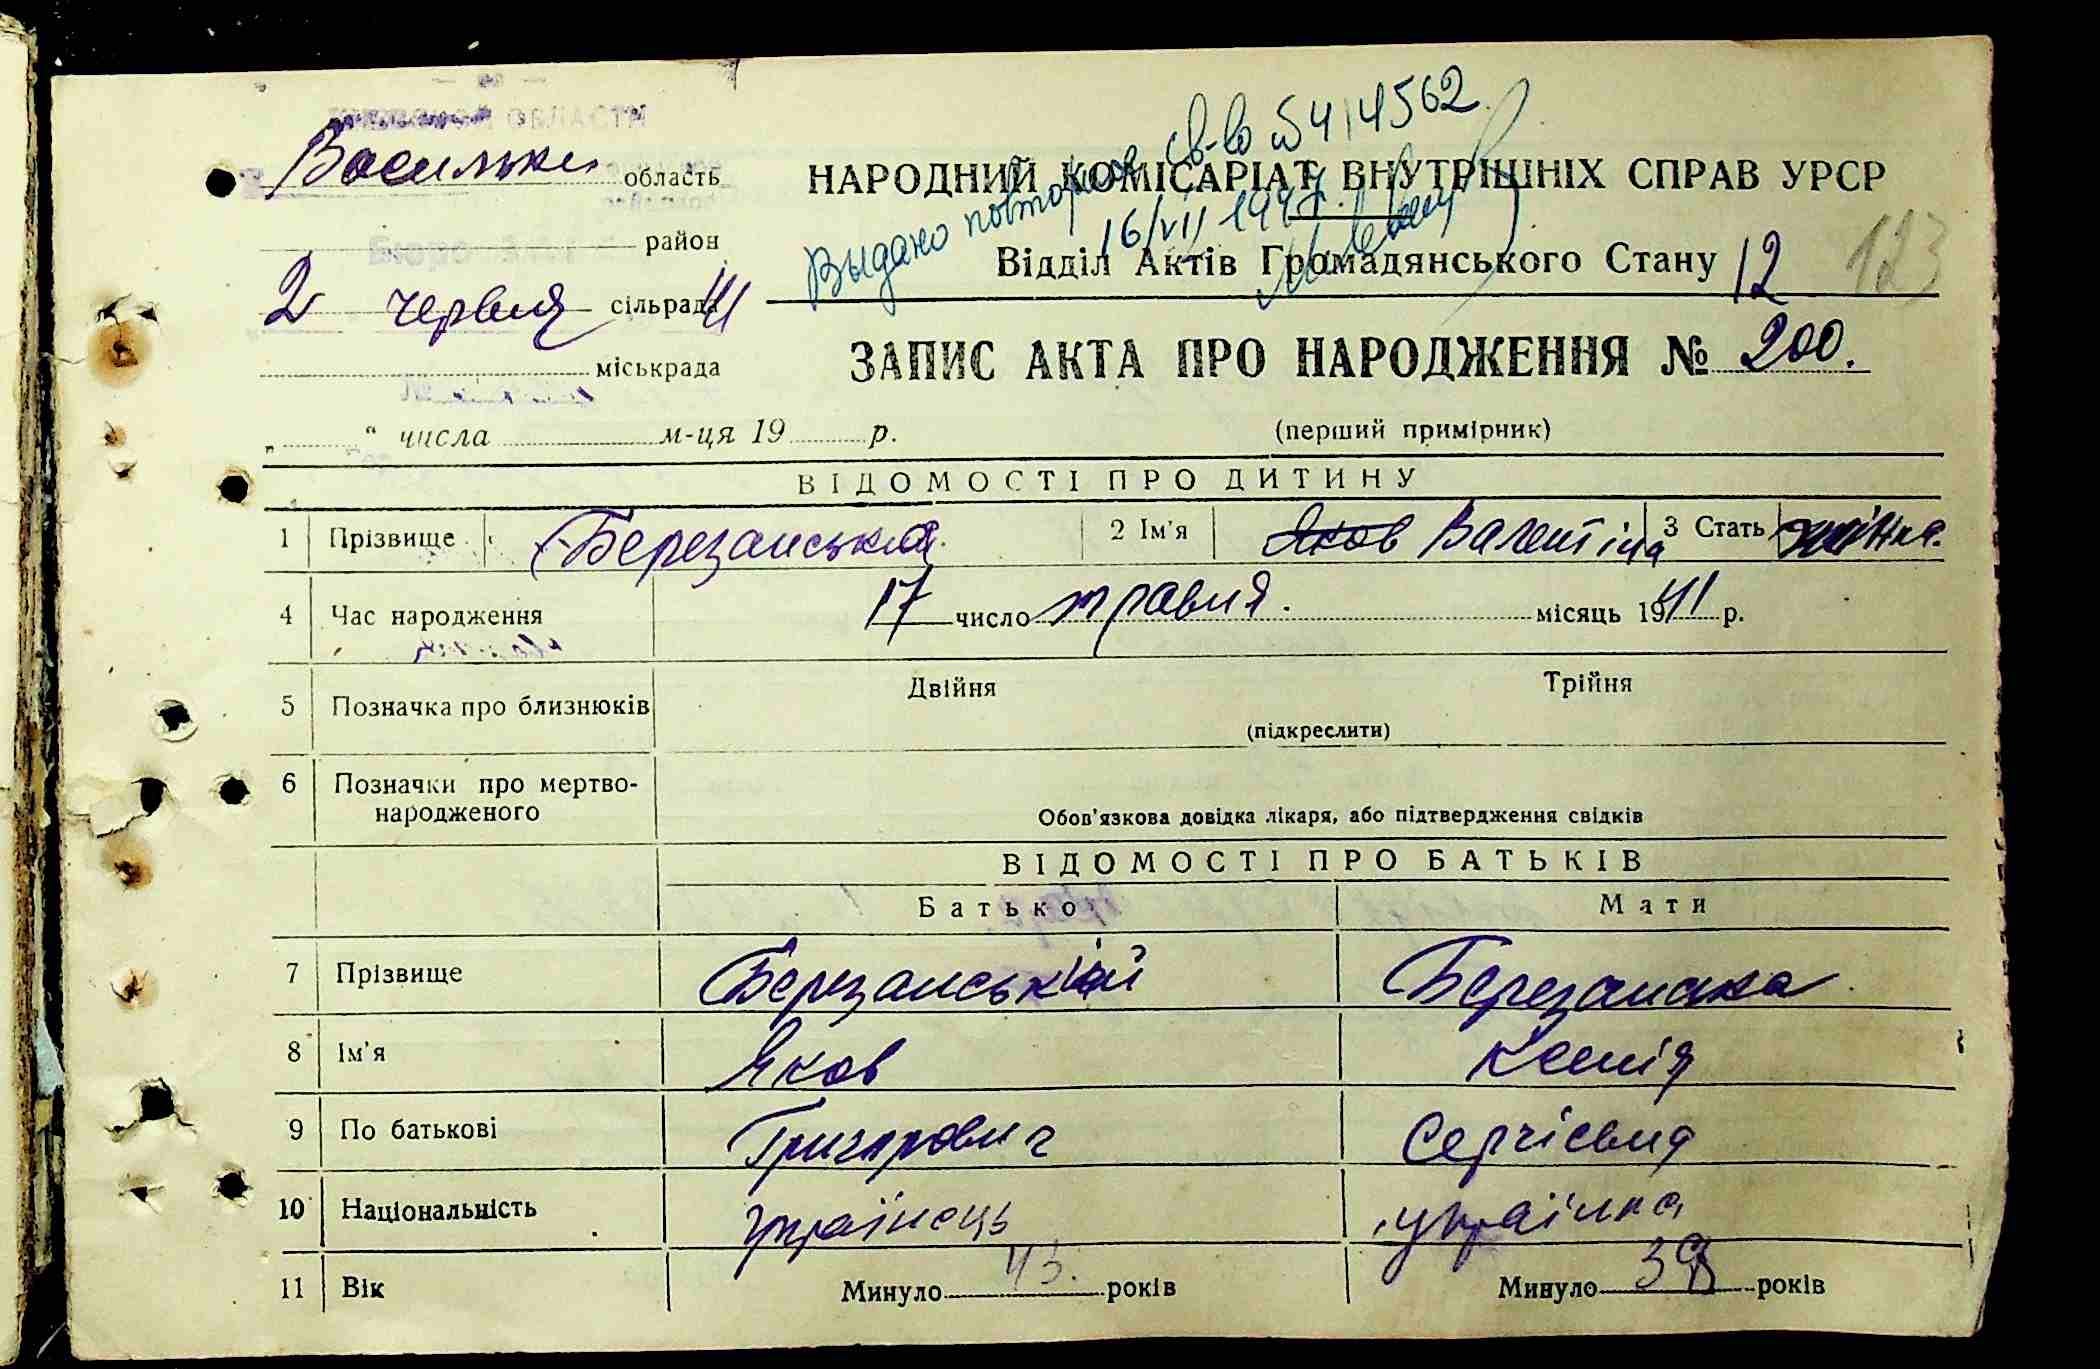 ОБЛАСТИ
Васильків область
район
2 червня сільрада 41
міськрада
„ “ числа м-ця 19 р.
Выдано повторное св-во 414562
16/VII 194
НАРОДНИЙ КОМІСАРІАТ ВНУТРІШНІХ СПРАВ УРСР
Відділ Актів Громадянського Стану 12 123
ЗАПИС АКТА ПРО НАРОДЖЕННЯ № 200.
(перший примірник)
ВІДОМОСТІ ПРО ДИТИНУ
1 Прізвище Березанська. 2 Ім'я Яков Валентіна 3 Стать жінка.
4 Час народження 17 число травня. місяць 1941 р.
5 Позначка про близнюків Двійня Трійня
(підкреслити)
6 Позначки про мертво-
народженого
Обов'язкова довідка лікаря, або підтвердження свідків
ВІДОМОСТІ ПРО БАТЬКІВ
Батько Мати
7 Прізвище Березанській Березанска
8 Ім'я Яков Ксенія
9 По батькові Григорович Сергієвна
10 Національність українець українка
11 Вік Минуло 43. років Минуло 38 років